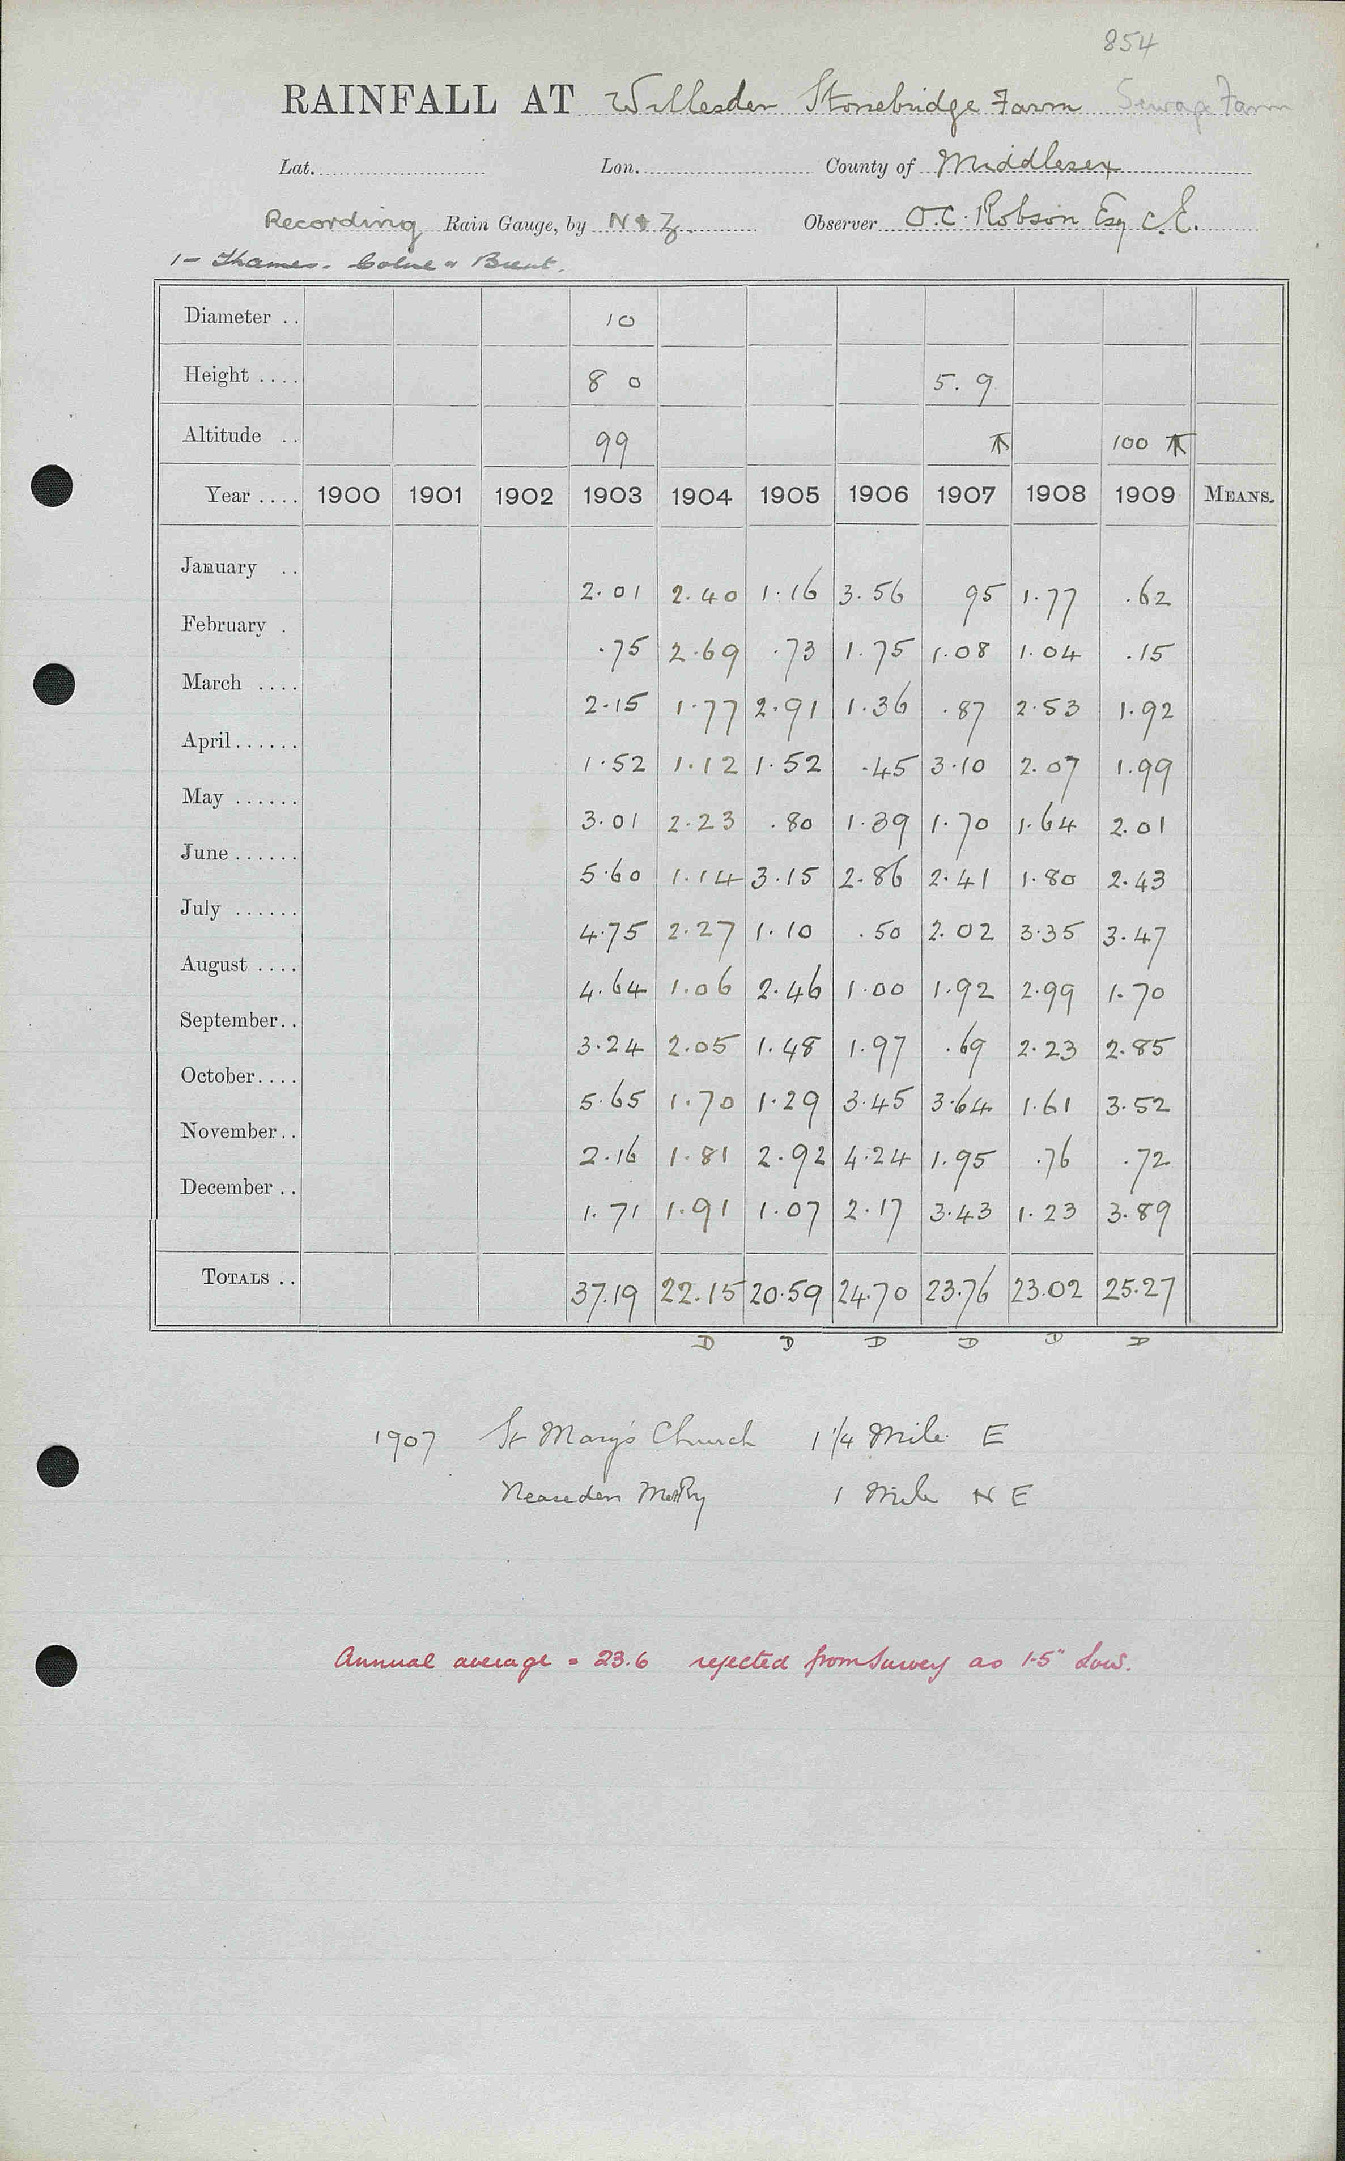 854
RAINFALL AT Willesden Stonebridge Farm Sewage Farm
Lat. Lon. County of Middlesex
Recording Rain Gauge, by N & Z. Observer O.C. Robson Esq C.E.
1– Thames. Colne & Brent.
Diameter .. 10
Height .... 8 0 5. 9
Altitude .. 99 100
Year .... 1900 1901 1902 1903 1904 1905 1906 1907 1908 1909 MEANS.
January .. 2.01 2.40 1.16 3.56 95 1.77 .62
February . .75 2.69 .73 1.75 1.08 1.04 .15
March .... 2.15 1.77 2.91 1.36 .87 2.53 1.92
April...... 1.52 1.12 1.52 .45 3.10 2.07 1.99
May ...... 3.01 2.23 .80 1.39 1.70 1.64 2.01
June...... 5.60 1.14 3.15 2.86 2.41 1.80 2.43
July ...... 4.75 2.27 1.10 .50 2.02 3.35 3.47
August .... 4.64 1.06 2.46 1.00 1.92 2.99 1.70
September.. 3.24 2.05 1.48 1.97 .69 2.23 2.85
October.... 5.65 1.70 1.29 3.45 3.64 1.61 3.52
November.. 2.16 1.81 2.92 4.24 1.95 .76 .72
December .. 1.71 1.91 1.07 2.17 3.43 1.23 3.89
TOTALS .. 37.19 22.15 20.59 24.70 23.76 23.02 25.27
D D D D D D
1907 St Mary's Church 1 1/4 Mile E
Neasden 1 Mile N E
Annual average = 23.6 rejected from Survey as 1.5" Low.